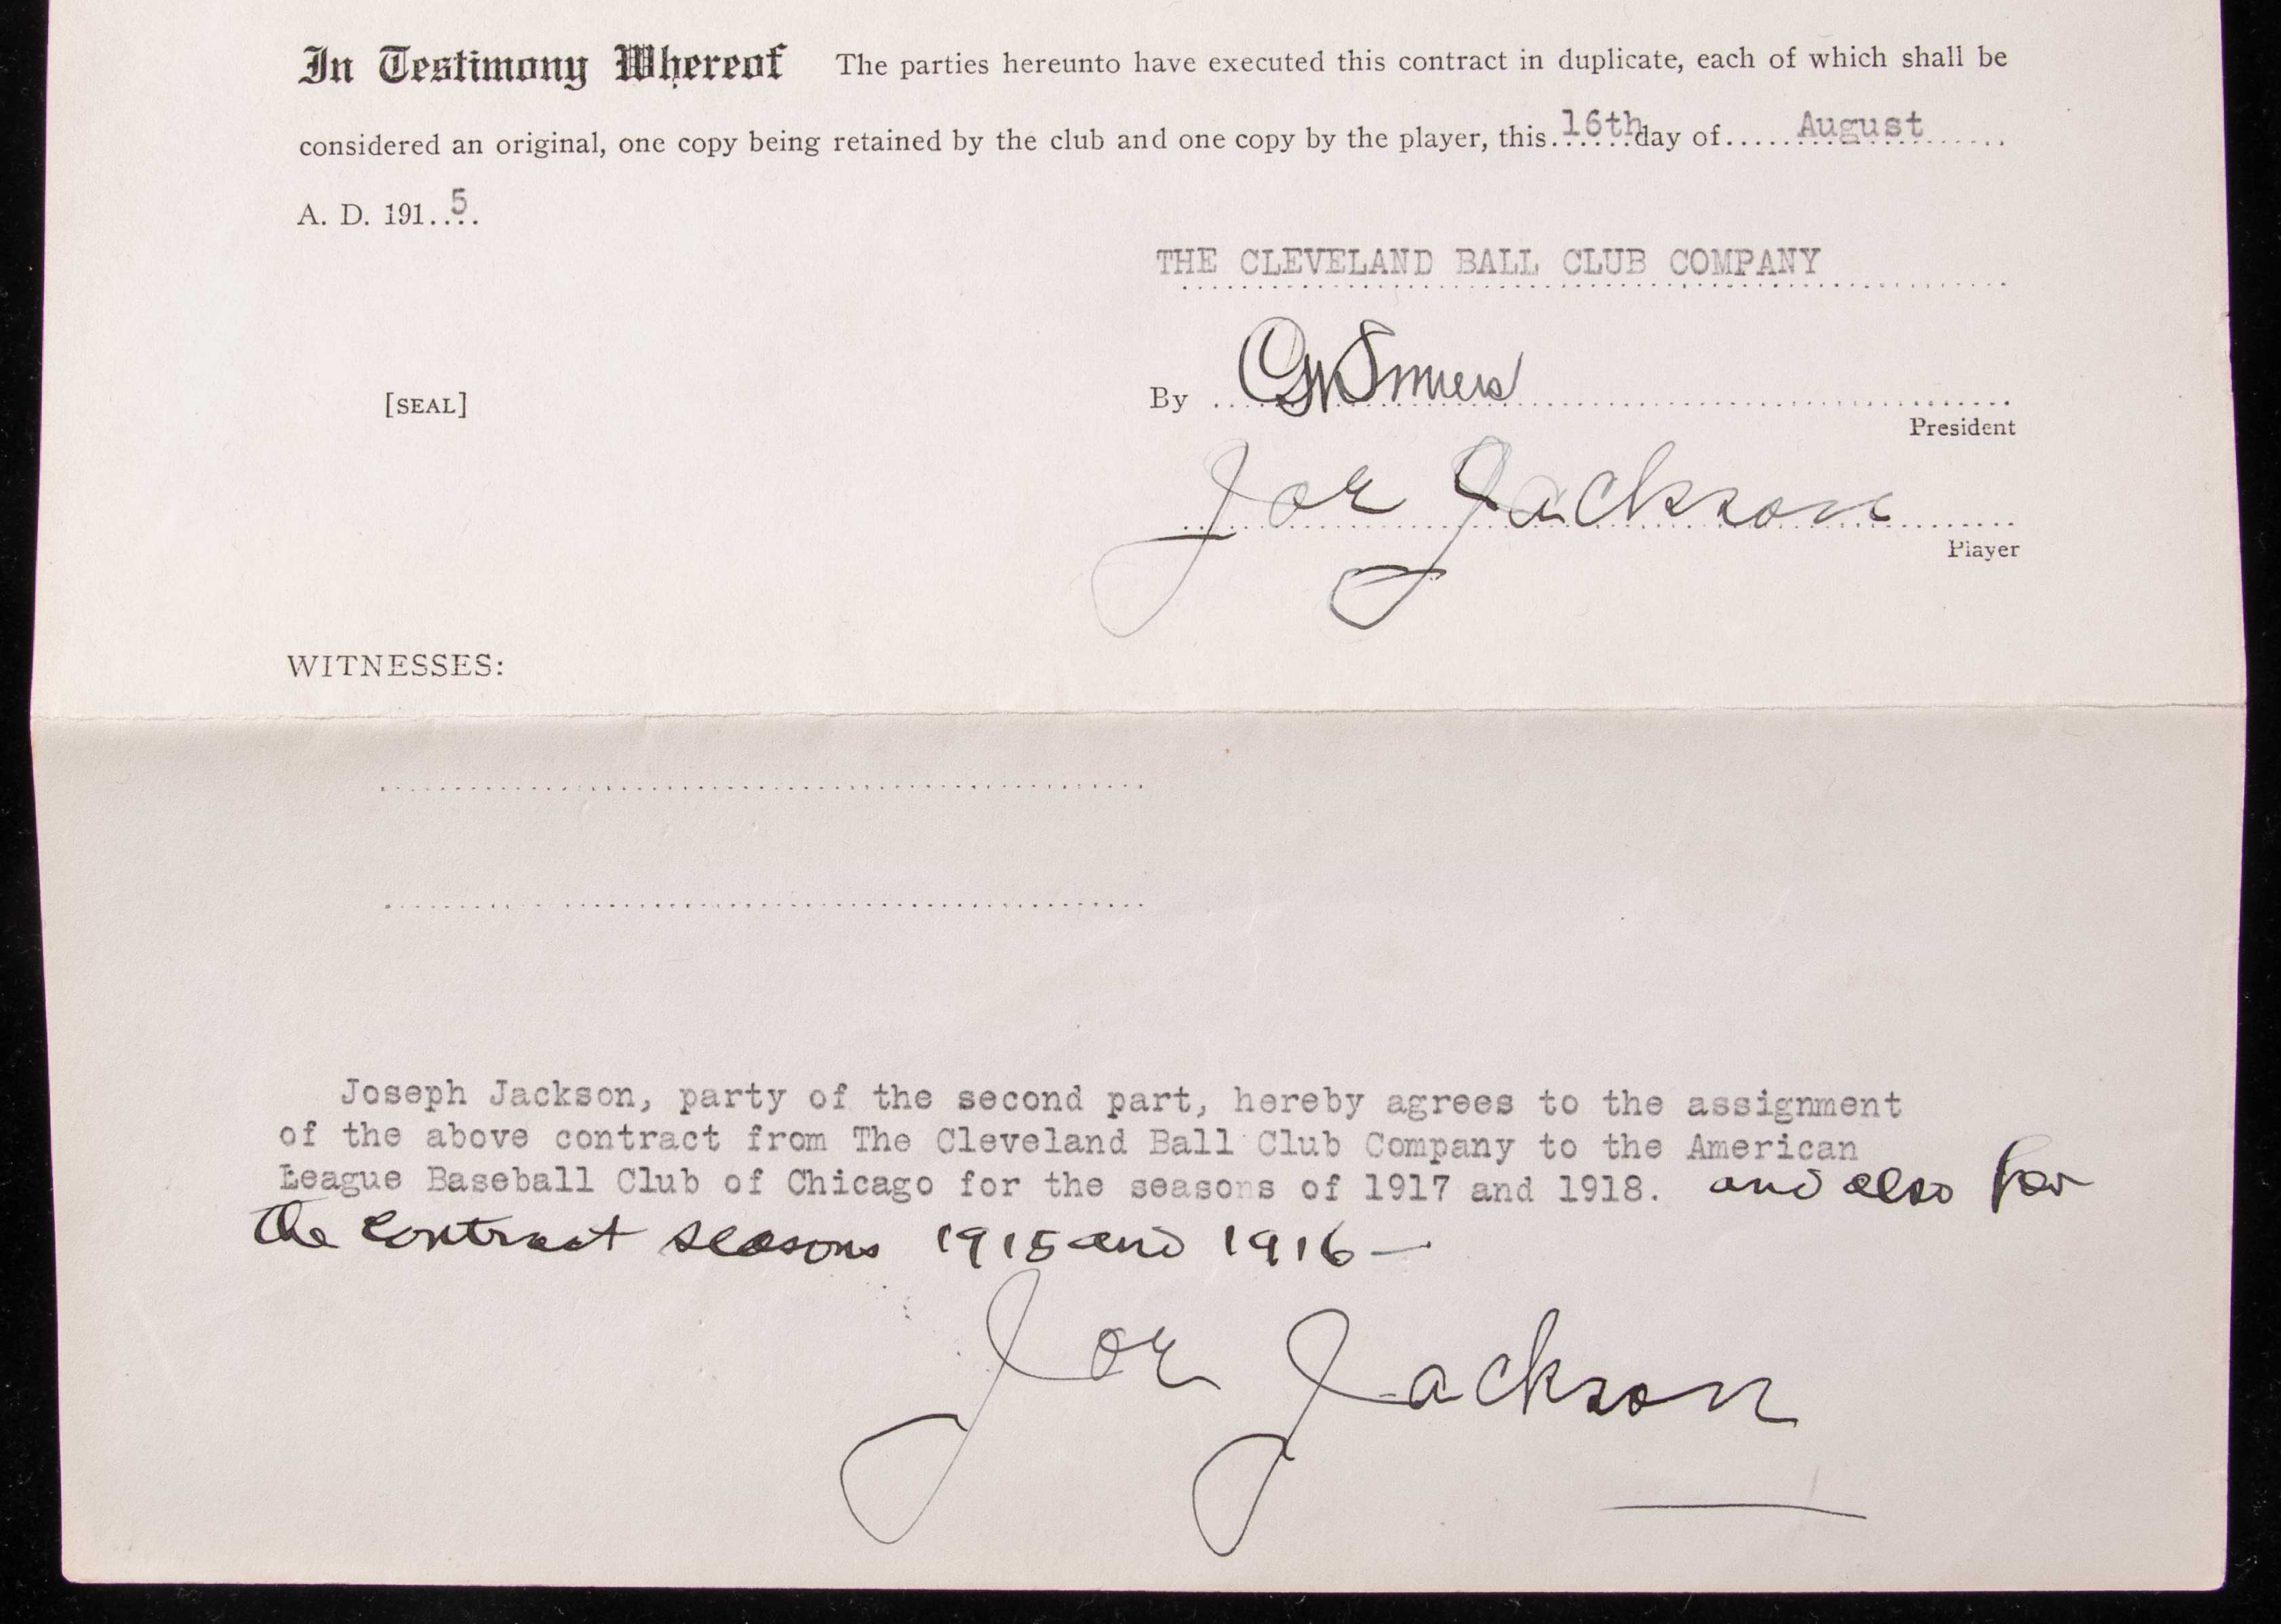 In Testimony Whereof The parties hereunto have executed this contract in duplicate, each of which shall be
considered an original, one copy being retained by the club and one copy by the player, this......16th day of.....August..........
A. D. 191..5..
THE CLEVELAND BALL CLUB COMPANY
[SEAL]
By
President
Joe Jackson
Player
WITNESSES:
Joseph Jackson, party of the second part, hereby agrees to the assignment
of the above contract from The Cleveland Ball Club Company to the American
League Baseball Club of Chicago for the seasons of 1917 and 1918. and also for
the contract seasons 1915 and 1916 —
Joe Jackson